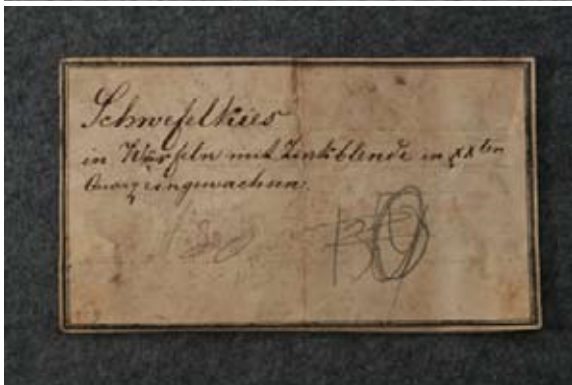 Schwefelkies
in Würfeln mit Zinkblende in xxten
Quarz eingewachsen.